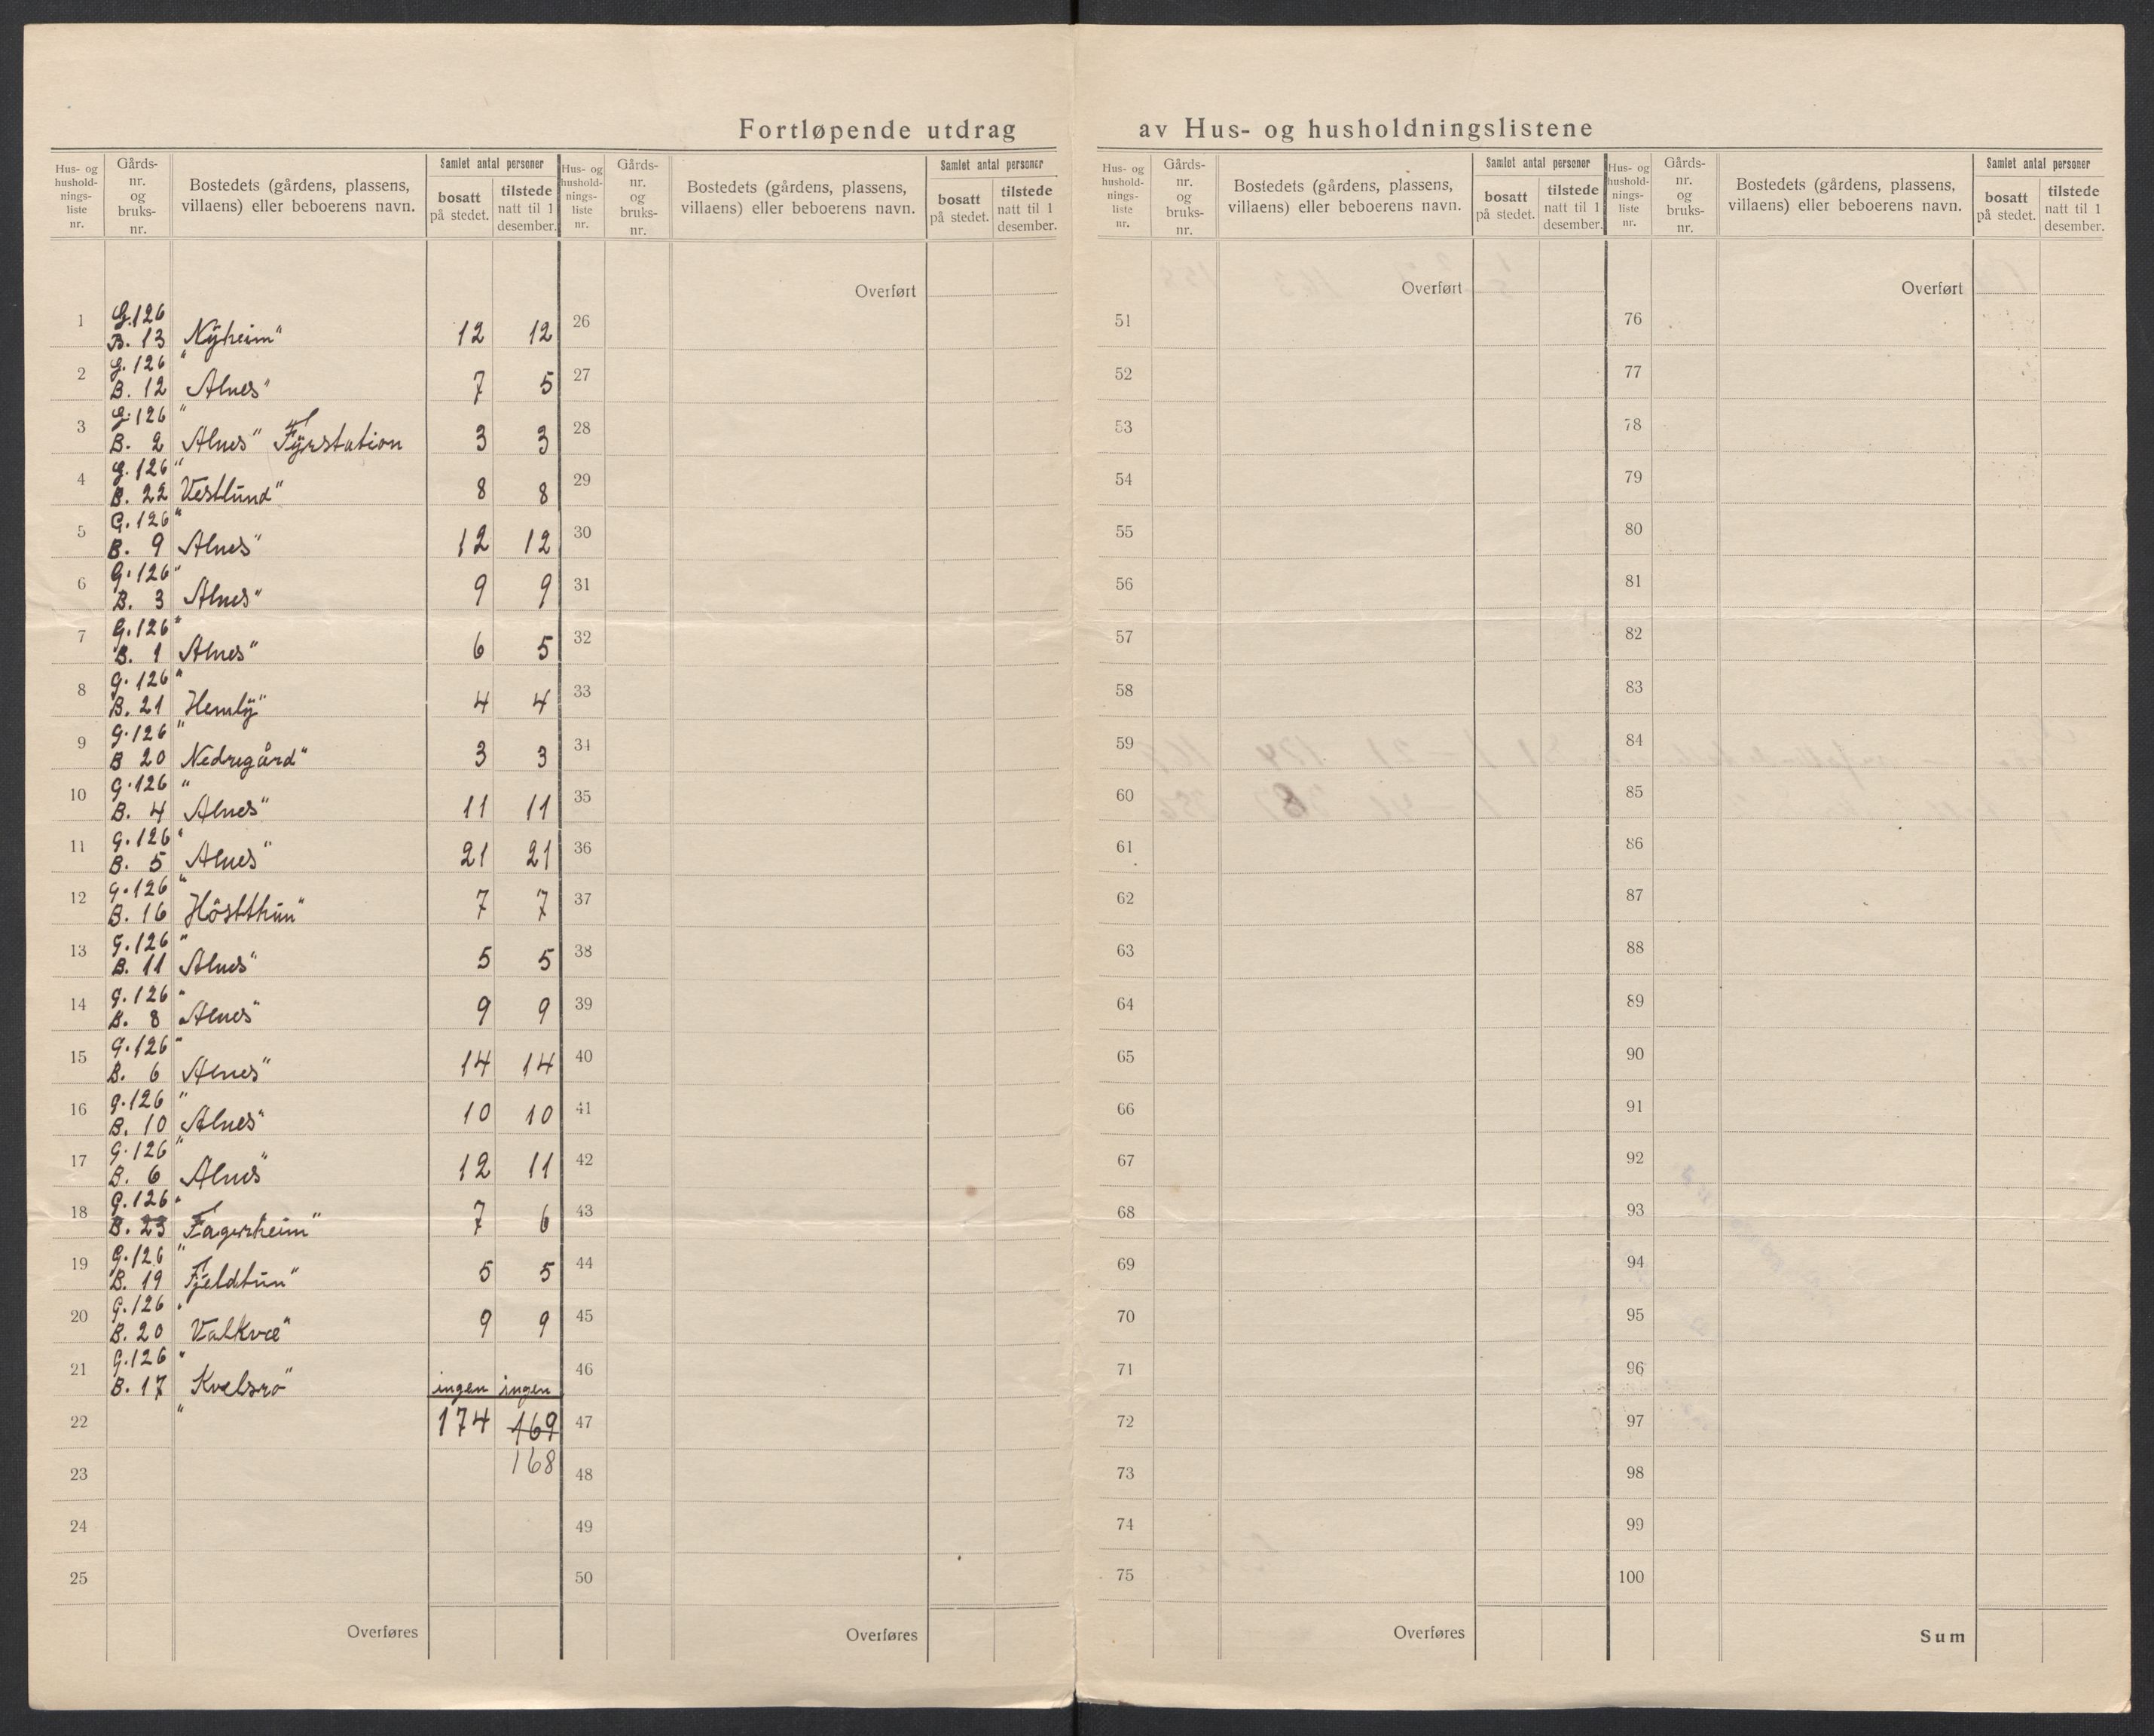 Fortløpende utdrag av Hus- og husholdningslistene
Hus- og hushold-nings-liste nr. | Gårds-nr. og bruks-nr. | Bostedets (gårdens, plassens, villaens) eller beboerens navn. | Samlet antal personer | bosatt på stedet. | tilstede natt til 1 desember.
Hus- og hushold-nings-liste nr. | Gårds-nr. og bruks-nr. | Bostedets (gårdens, plassens, villaens) eller beboerens navn. | Samlet antal personer | bosatt på stedet. | tilstede natt til 1 desember.
Hus- og hushold-nings-liste nr. | Gårds-nr. og bruks-nr. | Bostedets (gårdens, plassens, villaens) eller beboerens navn. | Samlet antal personer | bosatt på stedet. | tilstede natt til 1 desember.
Hus- og hushold-nings-liste nr. | Gårds-nr. og bruks-nr. | Bostedets (gårdens, plassens, villaens) eller beboerens navn. | Samlet antal personer | bosatt på stedet. | tilstede natt til 1 desember.
1 G.126 B. 13 Nyheim" 12 12
2 G.126 B. 12 "Alnes" 7 5
3 G.126 B. 2 "Alnes" Fyrstation 3 3
4 G.126 B. 22 "Vestlund" 8 8
5 G.126 B. 9 "Alnes" 12 12
6 G.126 B. 3 "Alnes" 9 9
7 G.126 B. 1 "Alnes" 6 5
8 G.126 B. 21 "Hemly" 4 4
9 G.126 B 20 "Nedregård" 3 3
10 G.126 B. 4 "Alnes" 11 11
11 G.126 B. 5 "Alnes" 21 21
12 G.126 B. 16 "Höstthun" 7 7
13 G.126 B. 11 "Alnes" 5 5
14 G.126 B. 8 "Alnes" 9 9
15 G.126 B. 6 "Alnes" 14 14
16 G.126 B. 10 "Alnes" 10 10
17 G.126 B. 6 "Alnes" 12 11
18 G.126 B. 23 "Fagerheim" 7 6
19 G.126 B. 19 "Fjeldtun" 5 5
20 G.126 B. 20 "Valkvæ" 9 9
21 G.126 B. 17 "Kvelsro" ingen ingen
22 " 174 169
23 168
24
25
Overføres
Overført
26
27
28
29
30
31
32
33
34
35
36
37
38
39
40
41
42
43
44
45
46
47
48
49
50
Overføres
Overført
51
52
53
54
55
56
57
58
59
60
61
62
63
64
65
66
67
68
69
70
71
72
73
74
75
Overføres
Overført
76
77
78
79
80
81
82
83
84
85
86
87
88
89
90
91
92
93
94
95
96
97
98
99
100
Sum